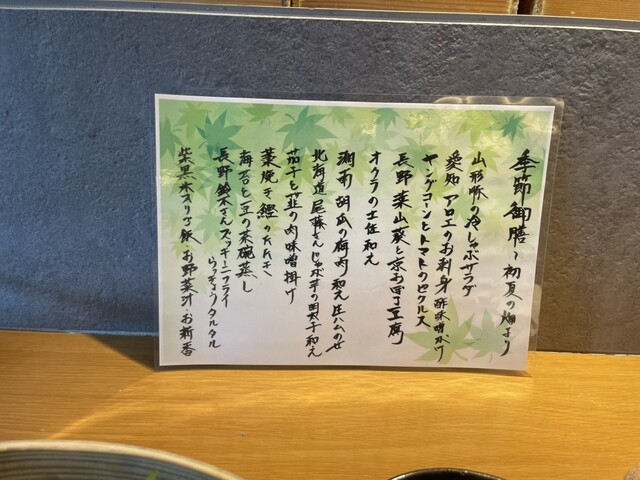 季節御膳〜初夏の畑より
山形豚の冷しゃぶサラダ
愛知アロエのお刺身 酢味噌かけ
ヤングコーンとトマトのピクルス
長野葉山葵と京お豆腐
オクラの土佐和え
湘南胡瓜の梅肉和え生ハムのせ
北海道尾藤さんじゃが芋の明太子和え
茄子と韮の肉味噌掛け
藁焼き鰹のたたき
海苔と豆の茶碗蒸し
長野鈴木さんズッキーニフライ
らっきょうタルタル
紫黒米入りご飯・お野菜汁・お新香